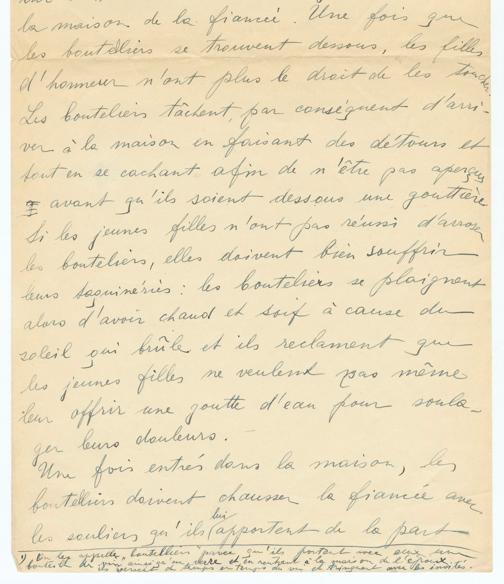 la maison de la fiancée. Une fois que
les boutéliers se trouvent dessous, les filles
d'honneur n'ont plus le droit de les toucher.
Les bouteliers tâchent, par conséquent d'arri-
ver à la maison en faisant des détours et
tout en se cachant afin de n'être pas aperçus
avant qu'ils soient dessous une gouttière
Si les jeunes filles n'ont pas réussi d'arroser
les bouteliers, elles doivent bien souffrir
leurs taquinéries : les bouteliers se plaignent
alors d'avoir chaud et soif à cause du
soleil qui brûle et ils reclament que
les jeunes filles ne veulent pas même
leur offrir une goutte d'eau pour soula-
ger leurs douleurs.
Une fois entrés dans la maison, les
boutelliers doivent chausser la fiancée avec
les souliers qu'ils lui apportent de la part
1) On les appelle "boutelliers" parce qu'ils portent avec eux une
bouteille de vin ainsi qu'un verre et en rentrant à la maison de l'époux
ils versent de temps en temps du vin et trinquent avec les invités.